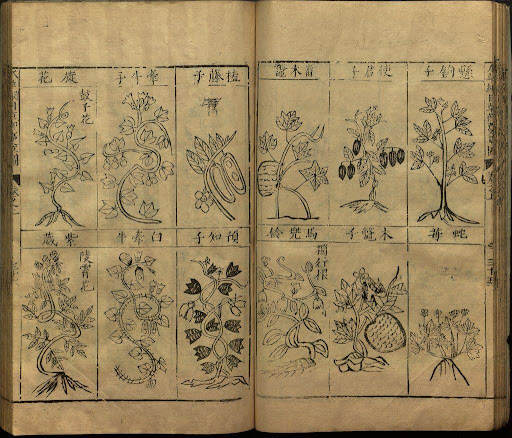 懸鈎子
使君子
番木鼈
蛇苺
木鼈子
馬兜鈴
獨行根
榼藤子
牽牛子
旋花
鼓子花
預知子
白牽牛
紫葳
陵霄花